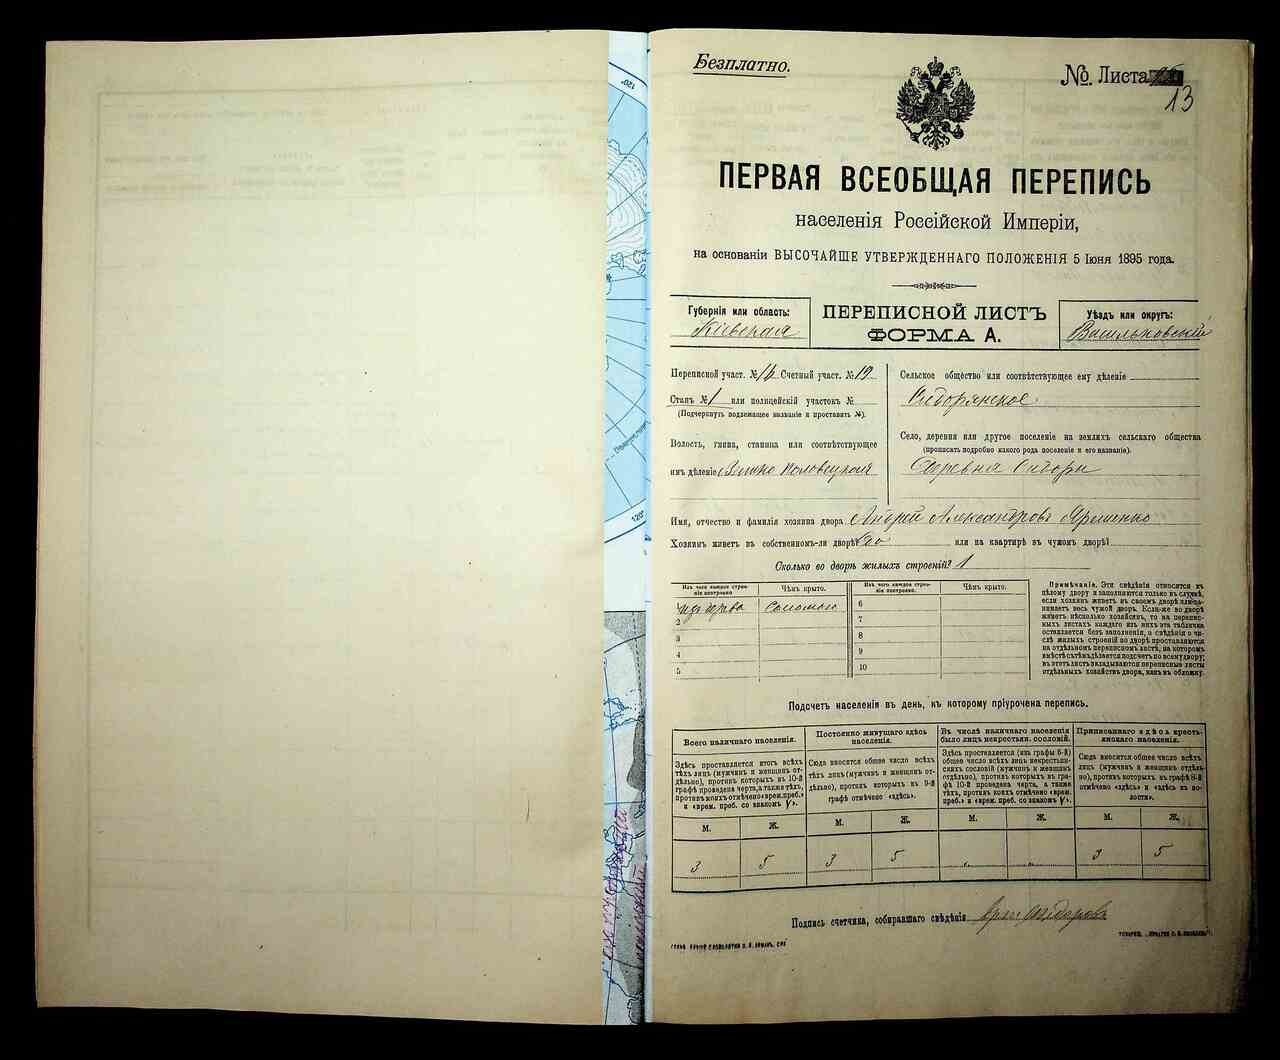 Безплатно.
№ Листа
13
ПЕРВАЯ ВСЕОБЩАЯ ПЕРЕПИСЬ
населенія Россійской Имперіи,
на основаніи ВЫСОЧАЙШЕ УТВЕРЖДЕННАГО ПОЛОЖЕНІЯ 5 Іюня 1895 года.
Губернія или область:
Кіевская
ПЕРЕПИСНОЙ ЛИСТЪ
ФОРМА А.
Уѣздъ или округъ:
Васильковскій
Переписной участ. № Счетный участ. № 19
Станъ № 1 или полицейскій участокъ №
(Подчеркнуть подлежащее названіе и проставить №).
Волость, гмина, станица или соотвѣтствующее
имъ дѣленіе Половецкая
Сельское общество или соотвѣтствующее ему дѣленіе
Сидорянское
Село, деревня или другое поселеніе на земляхъ сельскаго общества
(прописать подробно какого рода поселеніе и его названіе).
Деревня Сидори
Имя, отчество и фамилія хозяина двора Андрей Александровъ Ярошенко
Хозяинъ живетъ въ собственномъ-ли дворѣ? или на квартирѣ въ чужомъ дворѣ?
Сколько во дворѣ жилыхъ строеній? 1
Изъ чего каждое строеніе построено
Чѣмъ крыто.
Изъ чего каждое строеніе построено
Чѣмъ крыто.
изъ дерева Соломою 6
2 7
3 8
4 9
5 10
Примѣчаніе. Эти свѣдѣнія относятся къ
цѣлому двору и заполняются только въ случаѣ,
если хозяинъ живетъ въ своемъ дворѣ или за-
нимаетъ весь чужой дворъ. Если-же во дворѣ
живетъ нѣсколько хозяйствъ, то на перепис-
ныхъ листахъ каждаго изъ нихъ эта табличка
оставляется безъ заполненія, а свѣдѣнія о чи-
слѣ жилыхъ строеній во дворѣ проставляются
на отдѣльномъ переписномъ листѣ, на которомъ
вмѣстѣ съ тѣмъ дѣлается подсчетъ по всему двору;
въ этотъ листъ вкладываются переписные листы
отдѣльныхъ хозяйствъ двора, какъ въ обложку.
Подсчетъ населенія въ день, къ которому пріурочена перепись.
Всего наличнаго населенія.
Здѣсь проставляется итогъ всѣхъ
тѣхъ лицъ (мужчинъ и женщинъ от-
дѣльно), противъ которыхъ въ 10-й
графѣ проведена черта, а также тѣхъ,
противъ коихъ отмѣчено «врем. преб.»
и «врем. преб. со знакомъ V».
Постоянно живущаго здѣсь
населенія.
Сюда вносится общее число всѣхъ
тѣхъ лицъ (мужчинъ и женщинъ от-
дѣльно), противъ которыхъ въ 9-й
графѣ отмѣчено «здѣсь».
Въ числѣ наличнаго населенія
было лицъ некрестьян. сословій.
Здѣсь проставляется (изъ графы 6-й)
общее число всѣхъ лицъ некрестьян-
скихъ сословій (мужчинъ и женщинъ
отдѣльно), противъ которыхъ въ гра-
фѣ 10-й проведена черта, а также
тѣхъ, противъ коихъ отмѣчено «врем.
преб.» и «врем. преб. со знакомъ V».
Приписаннаго здѣсь кресть-
янскаго населенія.
Сюда вносится общее число всѣхъ
лицъ (мужчинъ и женщинъ отдѣль-
но), противъ которыхъ въ графѣ 8-й
отмѣчено «здѣсь» и «здѣсь въ во-
лости».
М. Ж. М. Ж. М. Ж. М. Ж.
3 5 3 5 " " 3 5
Подпись счетчика, собиравшаго свѣдѣнія